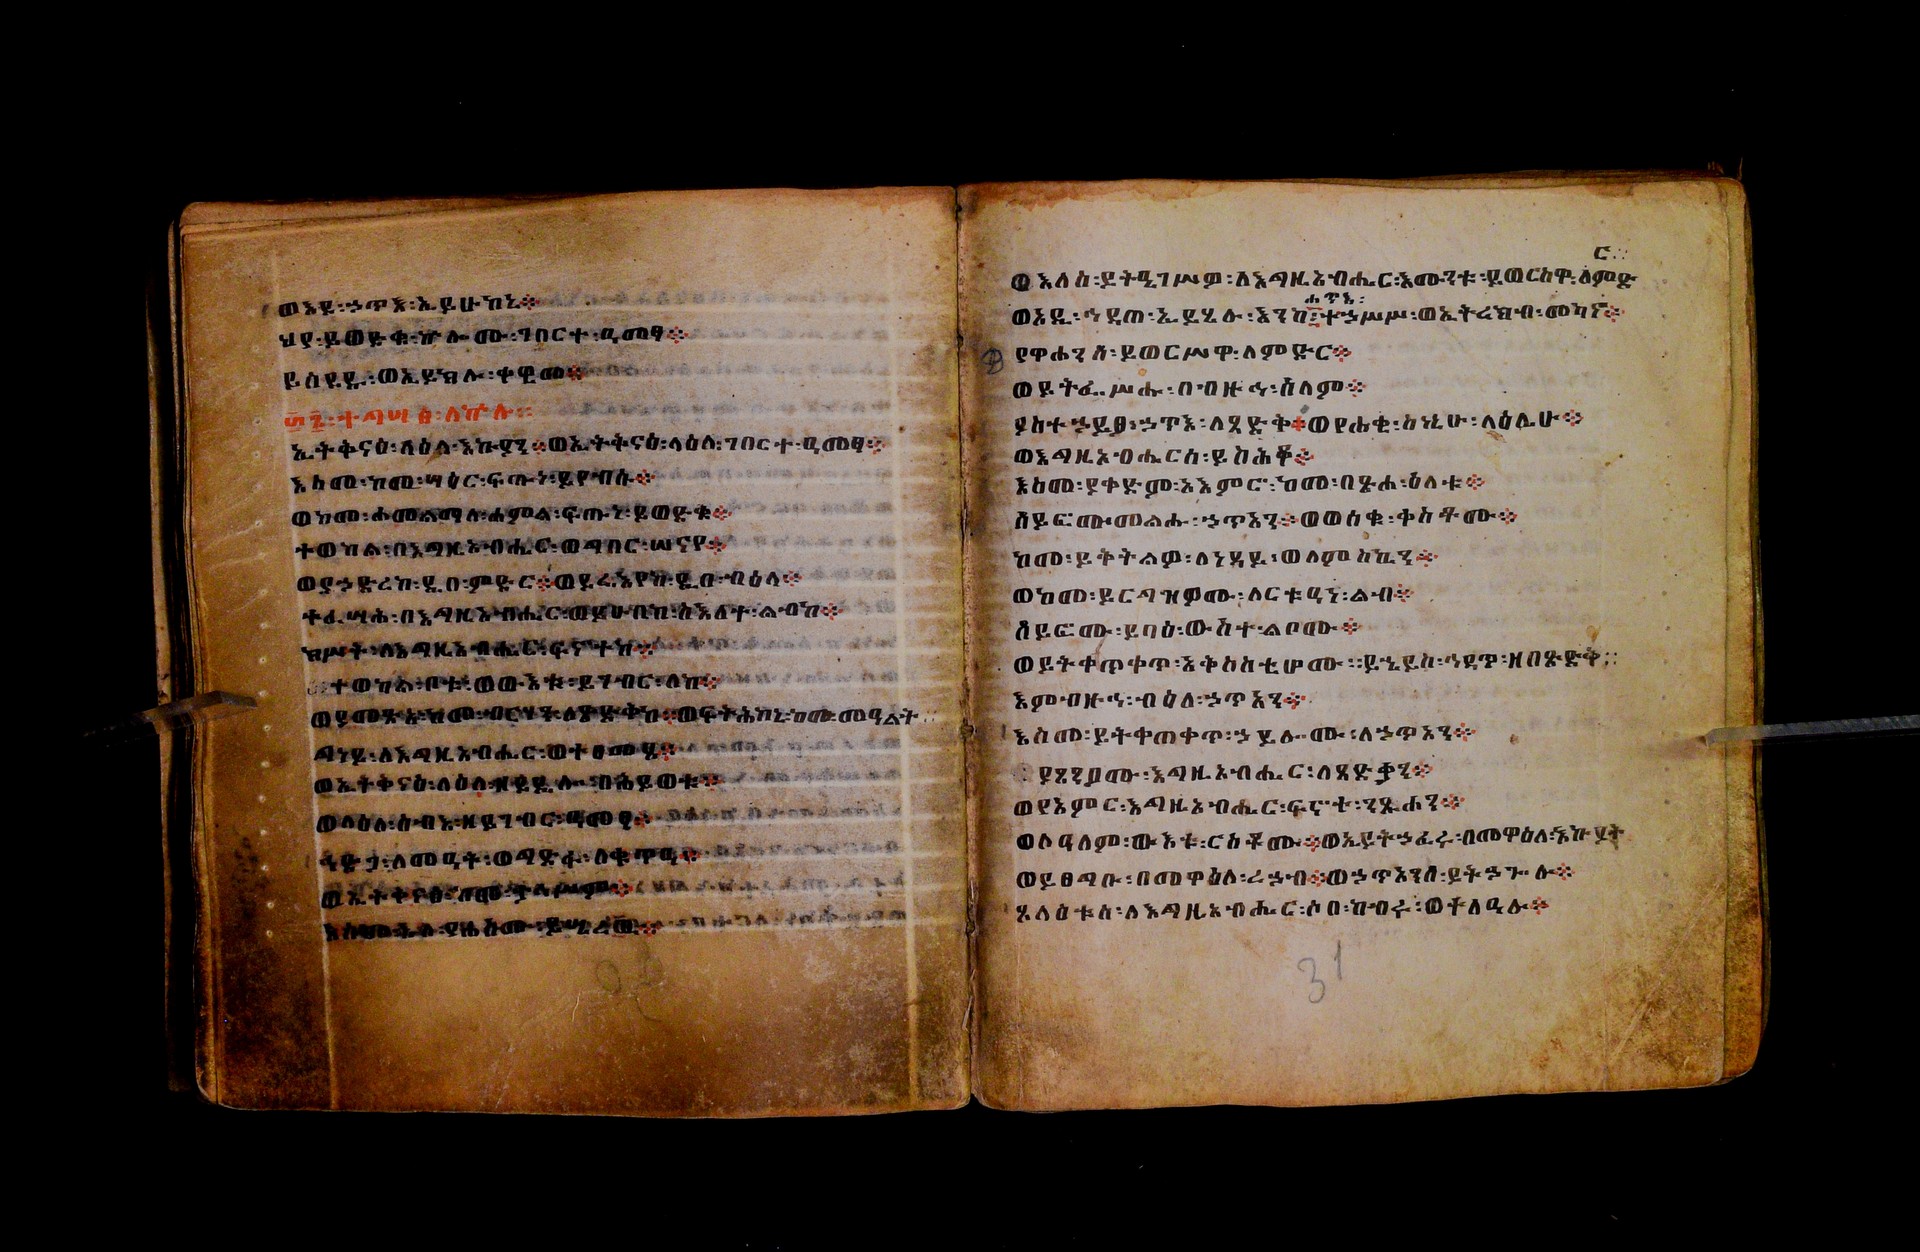 ወእደ፡ኃጥእ፡ኢይሁከኒ።
ህየ፡ይወድቁ፡ኵሎሙ፡ገበርተ፡ዓመፃ።
ይሰደዱ፡ወኢይክሉ፡ቀዊመ።
፴፮፡ተግሣፅ፡ለኵሉ።
ኢትቅናዕ፡ላዕለ፡እኩያን።ወኢትቅናዕ፡ላዕለ፡ገበርተ፡ዓመፃ።
እስመ፡ከመ፡ሣዕር፡ፍጡነ፡ይየብሱ።
ወከመ፡ሐመልማለ፡ሐምል፡ፍጡነ፡ይወድቁ።
ተወከል፡በእግዚአብሔር፡ወግበር፡ሠናየ።
ወያኃድረከ፡ዲበ፡ምድር።ወይሬእየከ፡ዲበ፡ብዕላ።
ተፈሣሕ፡በእግዚአብሔር፡ወይሁበከ፡ስእለተ፡ልብከ።
ክሥት፡ለእግዚአብሔር፡ፍኖተከ።
ተወከል፡ቦቱ፡ወውእቱ፡ይገብር፡ለከ።
ወያመጽኣ፡ከመ፡ብርሃን፡ለጽድቅከ።ወፍትሕከኒ፡ከመ፡መዓልት።
ግነይ፡ለእግዚአብሔር፡ወተፀመዶ።
ወኢትቅናዕ፡ላዕለ፡ዘይዴሎ፡በሕይወቱ።
ወላዕለ፡ሰብእ፡ዘይገብር፡ዓመፃ።
ኅድጋ፡ለመዓት፡ወግድፋ፡ለቍጥዓ።
ወኢትቅናዕ፡ከመ፡
እስመ፡እለ፡ያሐስሙ፡ይሤረዉ።
ር።
ወእለሰ፡ይትዔገሥዎ፡ለእግዚአብሔር፡እሙንቱ፡ይወርስዋ፡ለምድ
ሐጥእ፡
ወዓዲ፡ኅዳጠ፡ኢይሄሉ፡እንከ፡ተኃሥሥ፡ወኢትረክብ፡መካኖ።
የዋሐንሰ፡ይወርሥዋ፡ለምድር።
ወይትፌሥሑ፡በብዙኅ፡ሰላም።
ያስተኃይፆ፡ኃጥእ፡ለጻድቅ።ወየሐቂ፡ስነኒሁ፡ላዕሌሁ።
ወእግዚአብሔርሰ፡ይስሕቆ።
እስመ፡ያቀድም፡አእምሮ፡ከመ፡በጽሐ፡ዕለቱ።
ሰይፎሙ፡መልሑ፡ኃጥአን።ወወሰቁ፡ቀስቶሙ።
ከመ፡ይቅትልዎ፡ለነዳይ፡ወለምስኪን።
ወከመ፡ይርግዝዎሙ፡ለርቱዓነ፡ልብ።
ሰይፎሙ፡ይባዕ፡ውስተ፡ልቦሙ።
ወይትቀጠቀጥ፡አቅስስቲሆሙ።ይኄይስ፡ኅዳጥ፡ዘበጽድቅ።
እምብዙኅ፡ብዕለ፡ኃጥአን።
እስመ፡ይትቀጠቀጥ፡ኃይሎሙ፡ለኃጥአን።
ያጸንዖሙ፡እግዚአብሔር፡ለጻድቃን።
ወየአምር፡እግዚአብሔር፡ፍኖተ፡ንጹሐን።
ወለዓለም፡ውእቱ፡ርስቶሙ።ወኢይትኃፈሩ፡በመዋዕለ፡እኩይት
ወይፀግቡ፡በመዋዕለ፡ረኃብ።ወኃጥአንሰ፡ይትኃጐሉ።
ጸላዕቱሰ፡ለእግዚአብሔር፡ሶበ፡ከብሩ፡ወተለዓሉ።
31